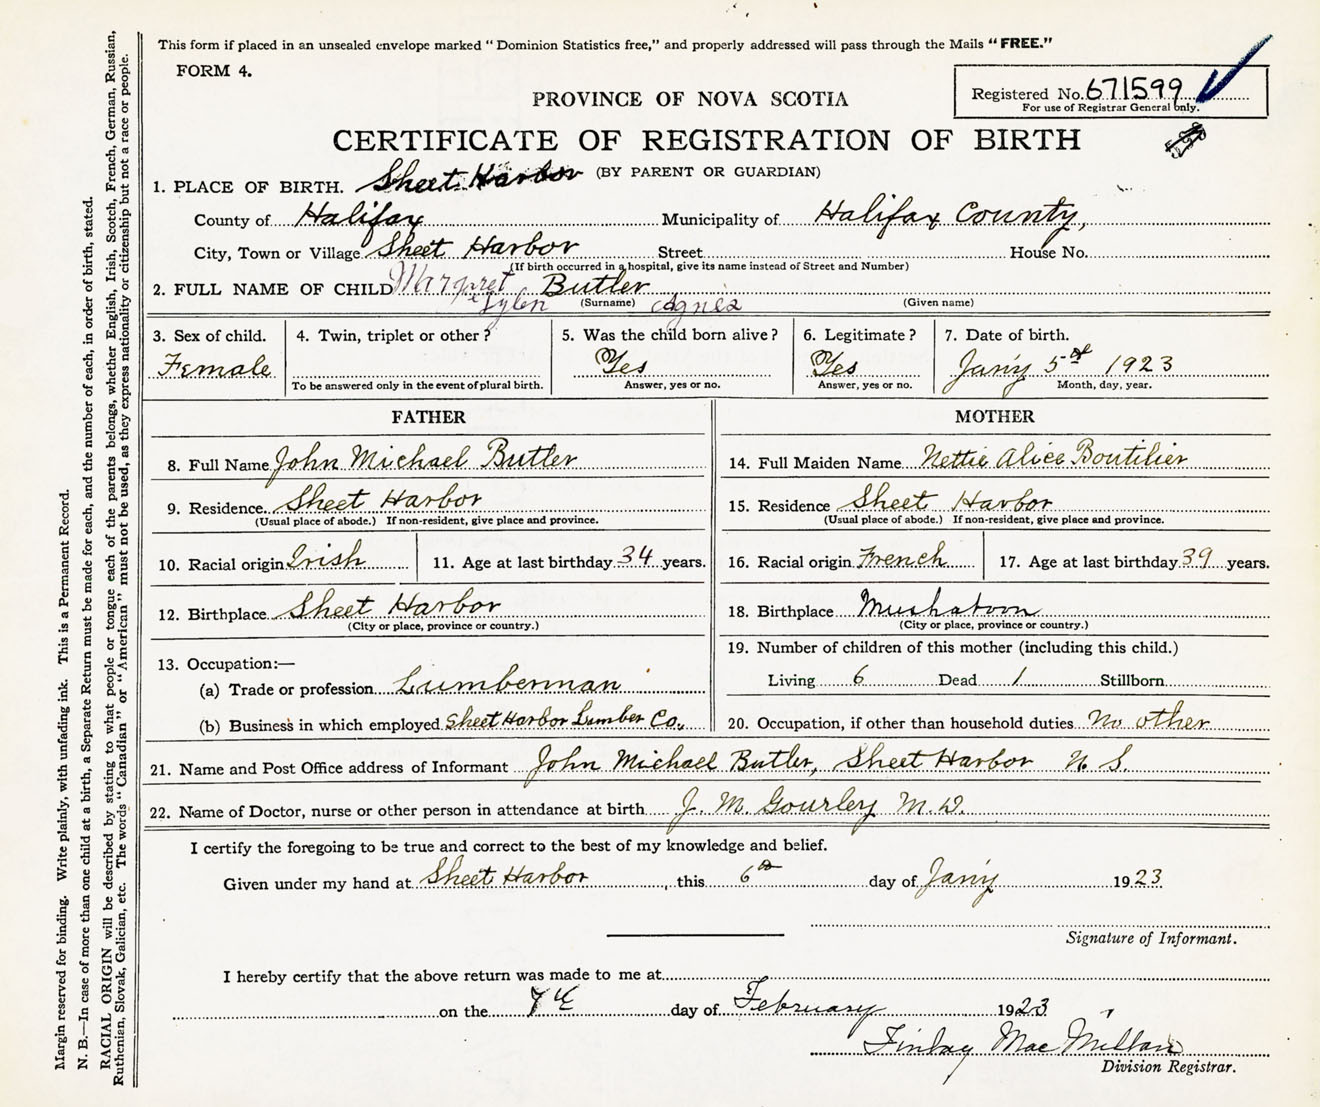 This form if placed in an unsealed envelope marked " Dominion Statistics free," and properly addressed will pass through the Mails " FREE."
FORM 4.
Registered No. 671599
For use of Registrar General only.
PROVINCE OF NOVA SCOTIA
CERTIFICATE OF REGISTRATION OF BIRTH
(BY PARENT OR GUARDIAN)
1. PLACE OF BIRTH. Sheet Harbor
County of Halifax Municipality of Halifax County,
City, Town or Village Sheet Harbor Street House No.
(If birth occurred in a hospital, give its name instead of Street and Number)
2. FULL NAME OF CHILD Margaret Butler
(Surname) Agnes (Given name)
3. Sex of child. Female
4. Twin, triplet or other ?
To be answered only in the event of plural birth.
5. Was the child born alive ? Yes
Answer, yes or no.
6. Legitimate ? Yes
Answer, yes or no.
7. Date of birth.
Jan'y 5th 1923
Month, day, year.
FATHER
8. Full Name John Michael Butler
9. Residence. Sheet Harbor
(Usual place of abode.) If non-resident, give place and province.
10. Racial origin Irish 11. Age at last birthday 34 years.
12. Birthplace Sheet Harbor
(City or place, province or country.)
13. Occupation:—
(a) Trade or profession Lumberman
(b) Business in which employed Sheet Harbor Lumber Co.
MOTHER
14. Full Maiden Name Nettie Alice Boutilier
15. Residence Sheet Harbor
(Usual place of abode.) If non-resident, give place and province.
16. Racial origin French 17. Age at last birthday 39 years.
18. Birthplace
(City or place, province or country.)
19. Number of children of this mother (including this child.)
Living 6 Dead 1 Stillborn
20. Occupation, if other than household duties No other
21. Name and Post Office address of Informant John Michael Butler, Sheet Harbor N. S.
22. Name of Doctor, nurse or other person in attendance at birth J. M. Gourley M.D.
I certify the foregoing to be true and correct to the best of my knowledge and belief.
Given under my hand at Sheet Harbor, this 6th day of Jan'y 1923
Signature of Informant.
I hereby certify that the above return was made to me at
on the 7th day of February 1923
Finlay MacMillan
Division Registrar.
Margin reserved for binding. Write plainly, with unfading ink. This is a Permanent Record.
N. B.—In case of more than one child at a birth, a Separate Return must be made for each, and the number of each, in order of birth, stated.
RACIAL ORIGIN will be described by stating to what people or tongue each of the parents belongs, whether English, Irish, Scotch, French, German, Russian,
Ruthenian, Slovak, Galician, etc. The words " Canadian " or " American " must not be used, as they express nationality or citizenship but not a race or people.